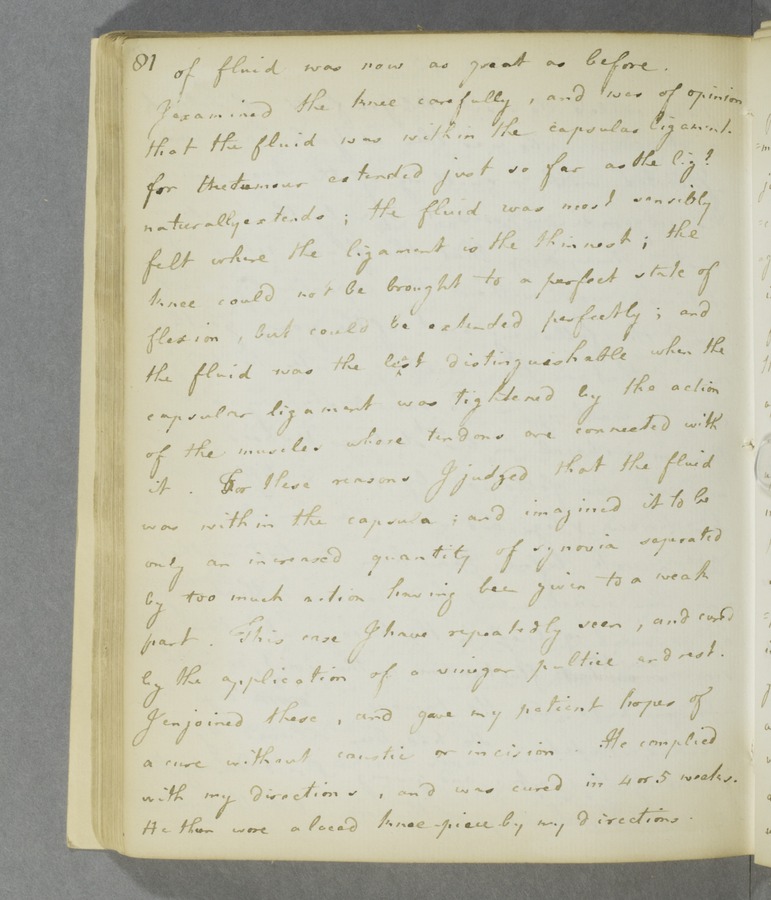 81
of fluid was now as great as before.
I examined the knee carefully, and was of opinion
that the fluid was within the capsular ligament.
for the tumour extended just so far as the ligt
naturally extends; the fluid was most sensibly
felt where the ligament is the thinnest; the
knee could not be brought to a perfect state of
flexion, but could be extended perfectly; and
the fluid was the lest distinguishable when the
capsular ligament was tightened by the action
of the muscles whose tendons are connected with
it. For these reasons I judged that the fluid
was within the capsula; and imagined it to be
only an increased quantity of synovia separated
by too much action having been given to a weak
part. This case I have repeatedly seen, and cured
by the application of a vinegar pultice and rest.
I enjoined these, and gave my patient hopes of
a cure without caustic or incision. He complied
with my directions, and was cured in 4 or 5 weeks.
He then wore a laced knee-piece by my directions.